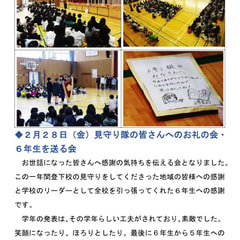 6年1組の
みなさんへ
◆2月28日（金）見守り隊の皆さんへのお礼の会・
6年生を送る会
お世話になった皆さんへ感謝の気持ちを伝える会となりました。
この一年間登下校の見守りをしてくださった地域の皆様への感謝
と学校のリーダーとして全校を引っ張ってくれた6年生への感謝
です。
学年の発表は、その学年らしい工夫がされており、素敵でした。
笑顔になったり、ほろりとしたり。最後に6年生から5年生への